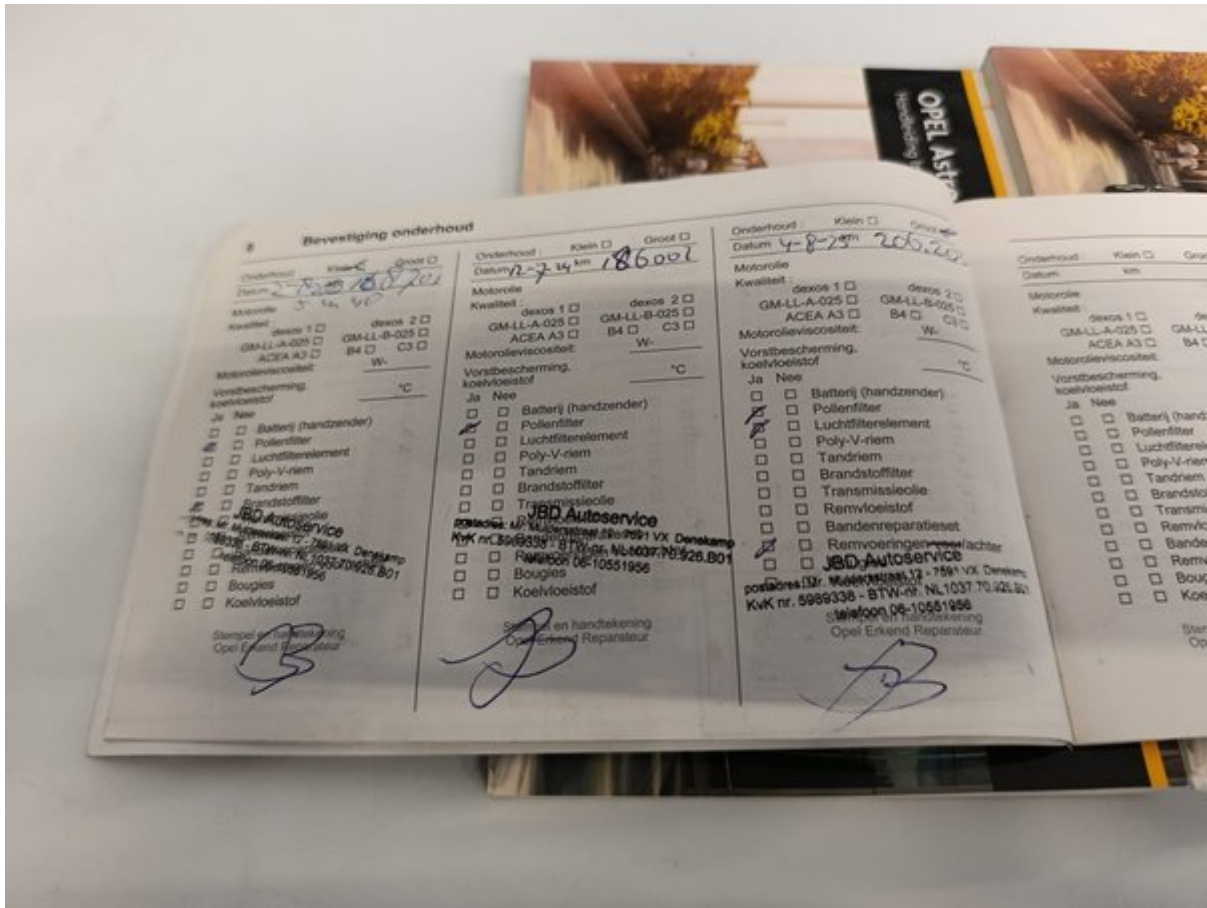 OPEL Astra
Handleiding
8 Bevestiging onderhoud
Onderhoud : Klein Groot
Datum
Motorolie
Kwaliteit :
dexos 1 dexos 2
GM-LL-A-025 GM-LL-B-025
ACEA A3 B4 C3
Motorolieviscositeit:
W-
Vorstbescherming,
koelvloeistof °C
Ja Nee
Batterij (handzender)
Pollenfilter
Luchtfilterelement
Poly-V-riem
Tandriem
Brandstoffilter
JBD Autoservice
postadres: Mr. Muldersstraat 12 - 7591 VX Denekamp
5989338 - BTW-nr. NL1037.70.926.B01
telefoon 06-10551956
Bougies
Koelvloeistof
Stempel en handtekening
Opel Erkend Reparateur
Onderhoud : Klein Groot
Datum 12-7-24 km 186001
Motorolie
Kwaliteit :
dexos 1 dexos 2
GM-LL-A-025 GM-LL-B-025
ACEA A3 B4 C3
Motorolieviscositeit:
W-
Vorstbescherming,
koelvloeistof °C
Ja Nee
Batterij (handzender)
Pollenfilter
Luchtfilterelement
Poly-V-riem
Tandriem
Brandstoffilter
Transmissieolie
JBD Autoservice
postadres: Mr. Muldersstraat 12 - 7591 VX Denekamp
KvK nr. 5989338 - BTW-nr. NL1037.70.926.B01
telefoon 06-10551956
Bougies
Koelvloeistof
Stempel en handtekening
Opel Erkend Reparateur
Onderhoud : Klein Groot
Datum 4-8-25 km 200.20
Motorolie
Kwaliteit :
dexos 1 dexos 2
GM-LL-A-025 GM-LL-B-025
ACEA A3 B4 C3
Motorolieviscositeit:
W-
Vorstbescherming,
koelvloeistof °C
Ja Nee
Batterij (handzender)
Pollenfilter
Luchtfilterelement
Poly-V-riem
Tandriem
Brandstoffilter
Transmissieolie
Remvloeistof
Bandenreparatieset
Remvoeringen voor/achter
JBD Autoservice
postadres: Mr. Muldersstraat 12 - 7591 VX Denekamp
KvK nr. 5989338 - BTW-nr. NL1037.70.926.B01
telefoon 06-10551956
Stempel en handtekening
Opel Erkend Reparateur
Onderhoud : Klein Groo
Datum km
Motorolie
Kwaliteit :
dexos 1
GM-LL-A-025 GM-LL
ACEA A3 B4
Motorolieviscositeit:
Vorstbescherming,
koelvloeistof
Ja Nee
Batterij (hand
Pollenfilter
Luchtfilterele
Poly-V-riem
Tandriem
Brandstof
Transmis
Remvlo
Bande
Remv
Boug
Koe
Stem
Op